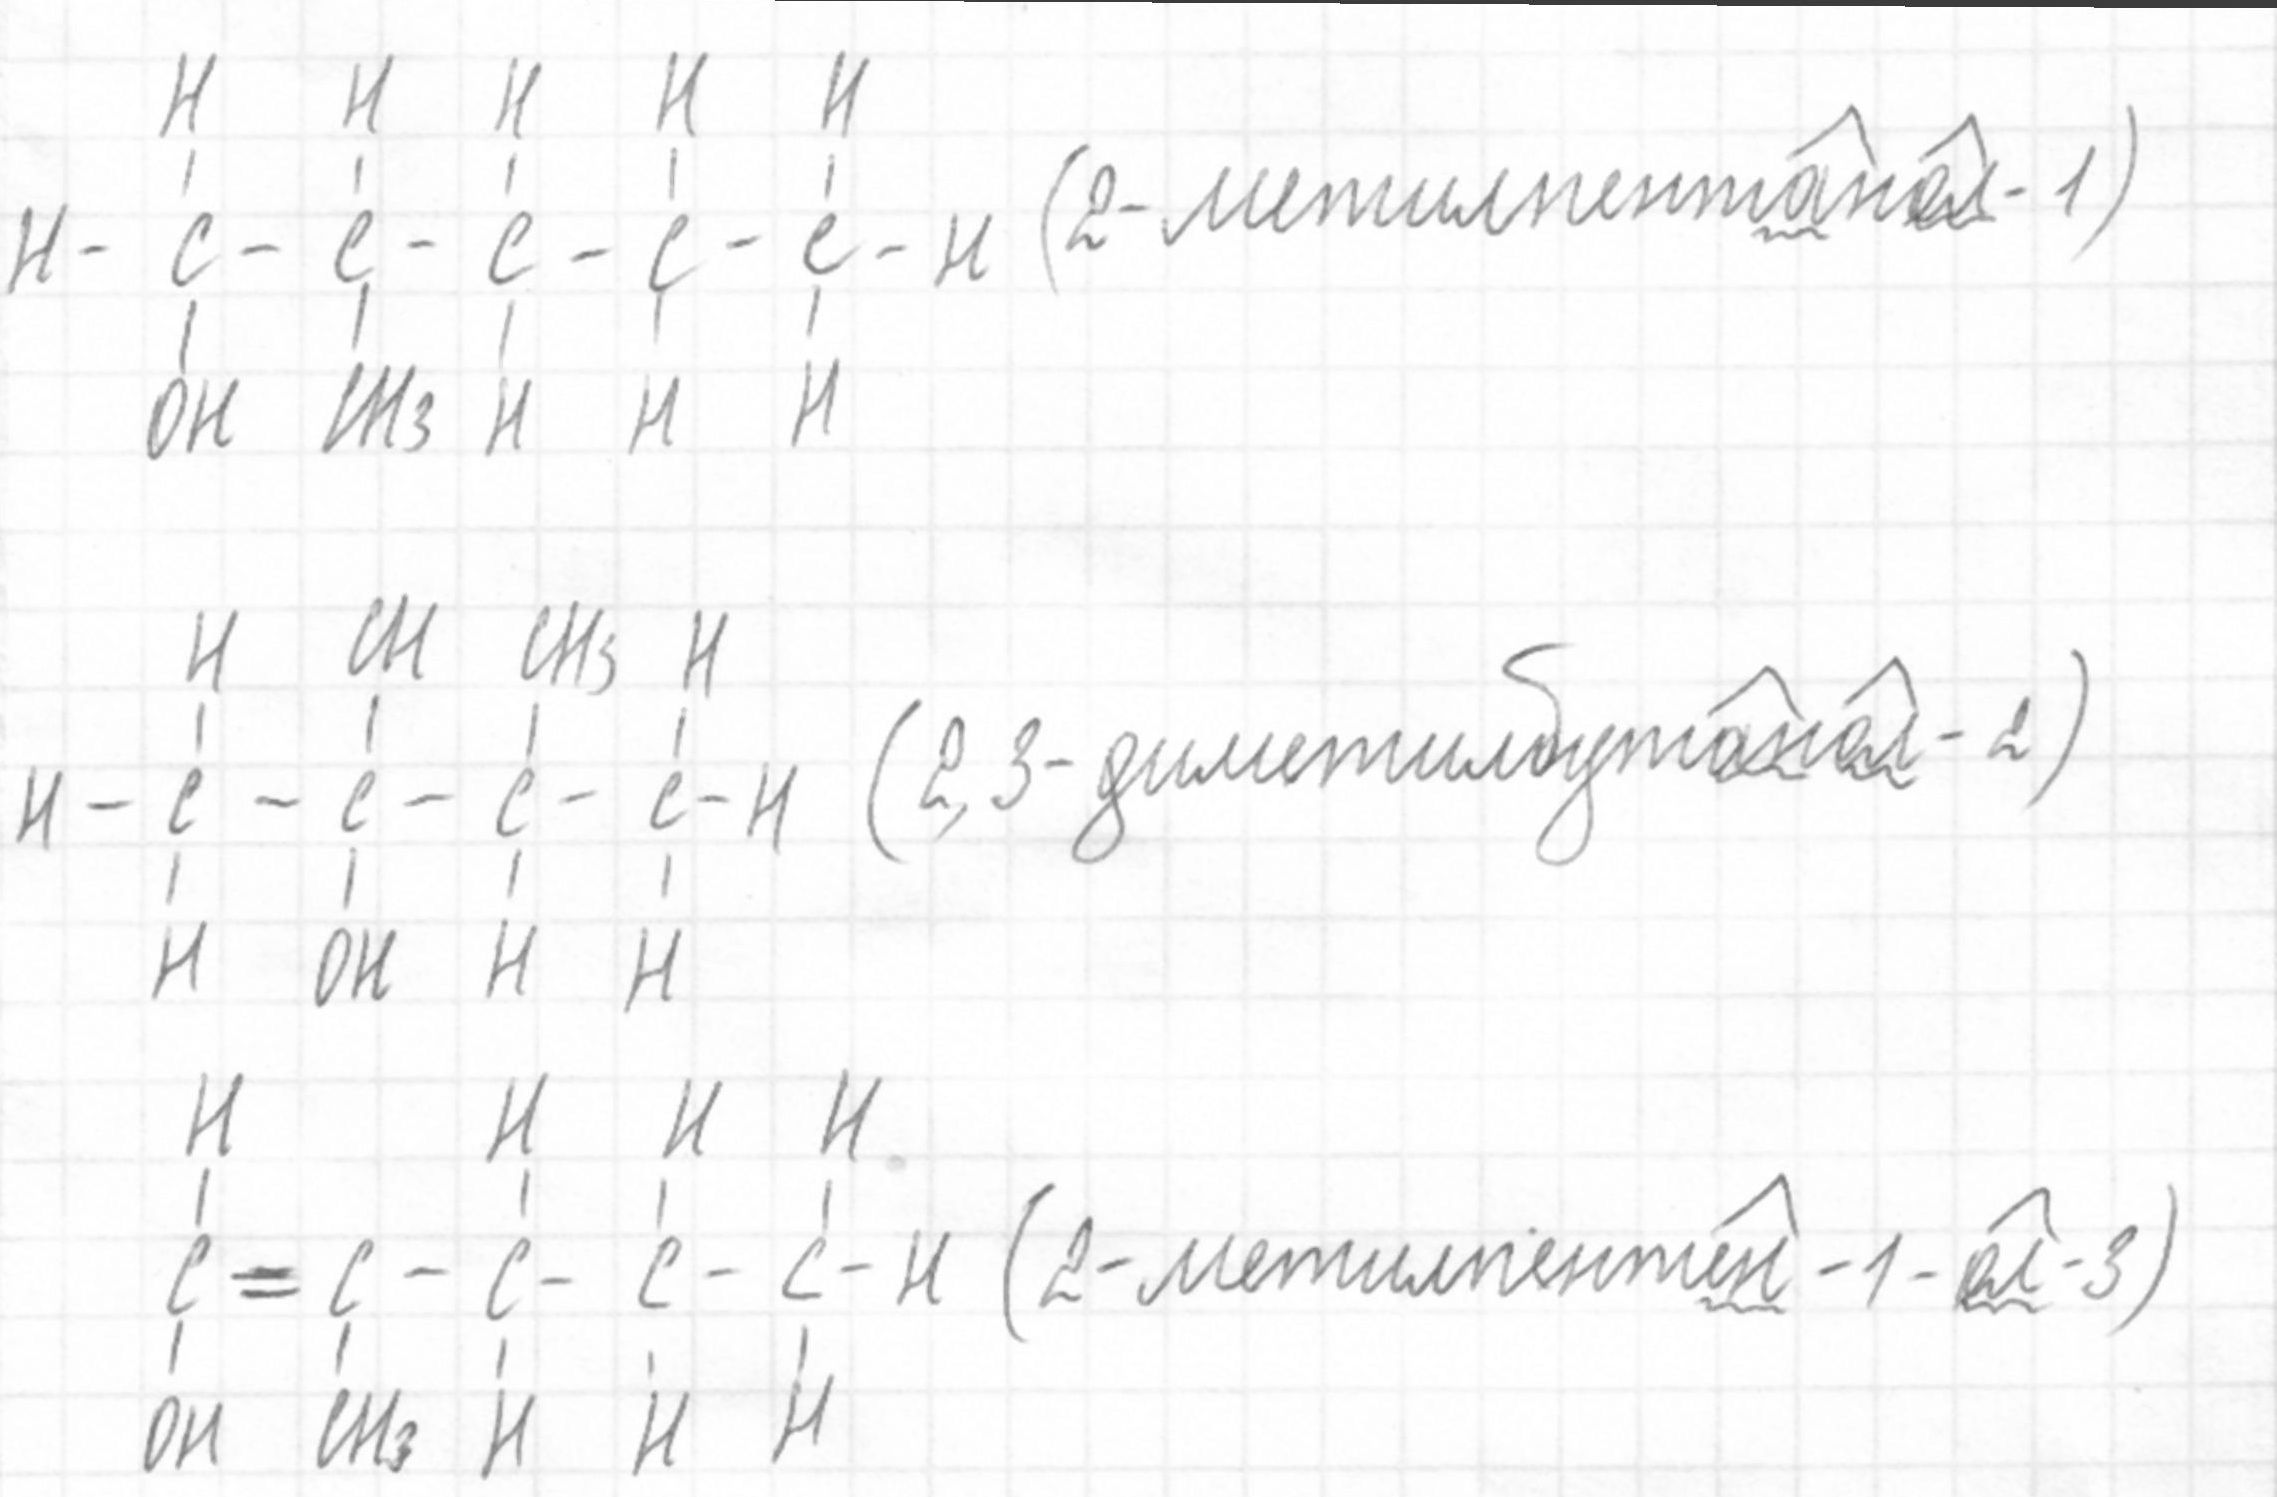 H H H H H
H - C - C - C - C - C - H (2-метилпентанол-1)
OH CH3 H H H
H CH CH3 H
H - C - C - C - C - H (2,3-диметилбутанол-2)
H OH H H
H H H H
C = C - C - C - C - H (2-метилпентен-1-ол-3)
OH CH3 H H H